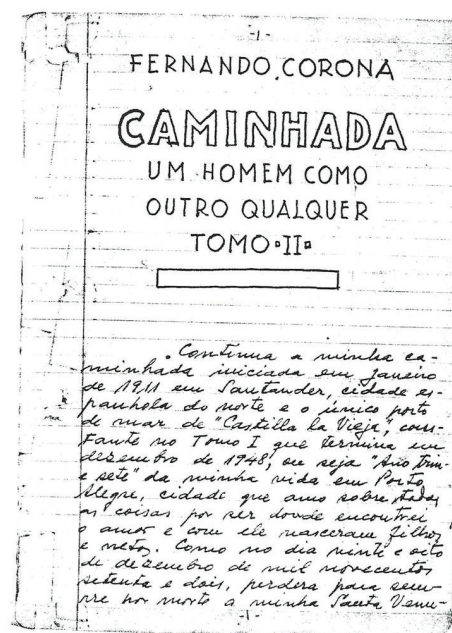 -1-
FERNANDO CORONA
CAMINHADA
UM HOMEM COMO
OUTRO QUALQUER
TOMO II
Continua a minha ca-
minhada iniciada em janeiro
de 1911 em Santander, cidade es-
panhola do norte e o único porto
de mar de "Castilla la Vieja", cons-
tante no Tomo I que termina em
dezembro de 1948, ou seja "Ano trin-
e sete" da minha vida em Porto
Alegre, cidade que amo sobre todas
as coisas por ser donde encontrei
o amor e com ele nasceram filhos
e netos. Como no dia vinte e oito
de dezembro de mil novecentos
setenta e dois, perdera para sem-
pre por morte a minha Santa Venu-
-1-